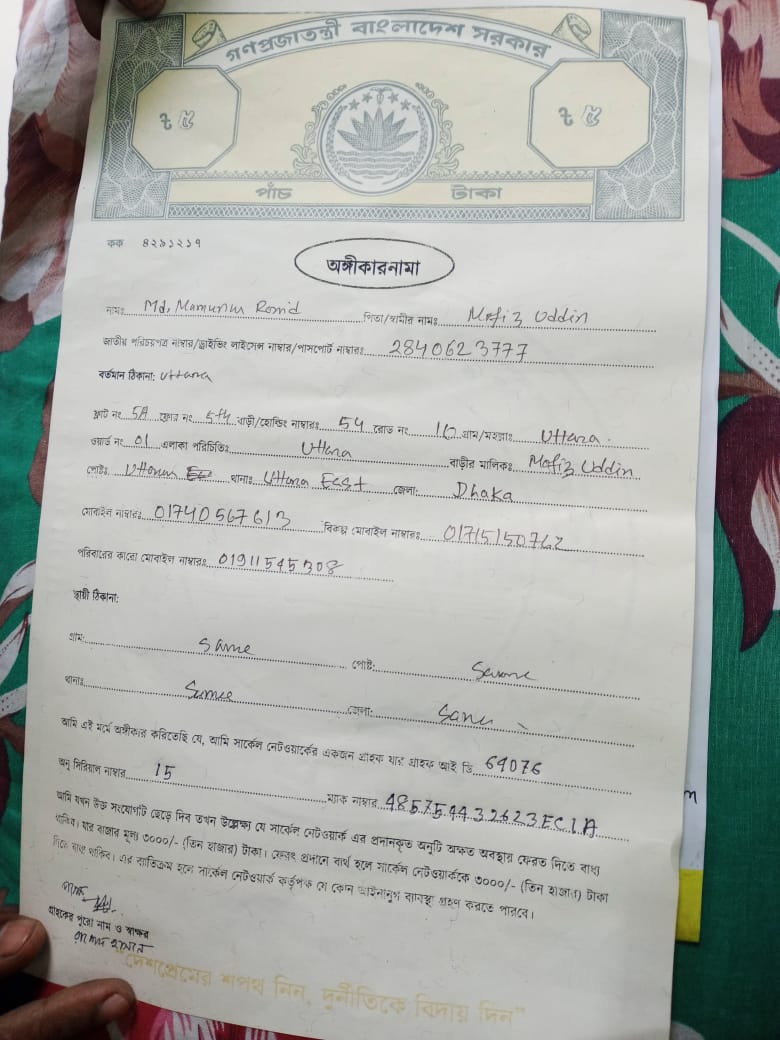 গণপ্রজাতন্ত্রী বাংলাদেশ সরকার
৳ ৫ ৳ ৫
পাঁচ টাকা
কক ৪২৯১২১৭
অঙ্গীকারনামা
নামঃ Md, Mamunur Romid পিতা/স্বামীর নামঃ Mofiz Uddin
জাতীয় পরিচয়পত্র নাম্বার/ড্রাইভিং লাইসেন্স নাম্বার/পাসপোর্ট নাম্বারঃ 2840623777
বর্তমান ঠিকানা: Uttara
ফ্লাট নং 5A ফ্লোর নং 5th বাড়ী/হোল্ডিং নাম্বারঃ 54 রোড নং 16 গ্রাম/মহল্লাঃ Uttara
ওয়ার্ড নং 01 এলাকা পরিচিতিঃ Uttara বাড়ীর মালিকঃ Mofiz Uddin
পোষ্টঃ থানাঃ Uttara Esst জেলা: Dhaka
মোবাইল নাম্বারঃ 01740567613 বিকল্প মোবাইল নাম্বারঃ 01715150762
পরিবারের কারো মোবাইল নাম্বারঃ 01911545308
স্থায়ী ঠিকানা:
গ্রাম: Same পোষ্ট: Same
থানাঃ Same জেলা: Same
আমি এই মর্মে অঙ্গীকার করিতেছি যে, আমি সার্কেল নেটওয়ার্কের একজন গ্রাহক যার গ্রাহক আই ডি 69076
অনু সিরিয়াল নাম্বার 15 ম্যাক নাম্বার 485754432623FC1A
আমি যখন উক্ত সংযোগটি ছেড়ে দিব তখন উল্লেক্ষ্য যে সার্কেল নেটওয়ার্ক এর প্রদানকৃত অনুটি অক্ষত অবস্থায় ফেরত দিতে বাধ্য
থাকিব। যার বাজার মূল্য ৩০০০/- (তিন হাজার) টাকা। ফেরৎ প্রদানে ব্যর্থ হলে সার্কেল নেটওয়ার্ককে ৩০০০/- (তিন হাজার) টাকা
দিতে বাধ্য থাকিব। এর ব্যতিক্রম হলে সার্কেল নেটওয়ার্ক কর্তৃপক্ষ যে কোন আইনানুগ ব্যবস্থা গ্রহণ করতে পারবে।
গ্রাহকের পুরো নাম ও স্বাক্ষর
"দেশপ্রেমের শপথ নিন, দুর্নীতিকে বিদায় দিন"